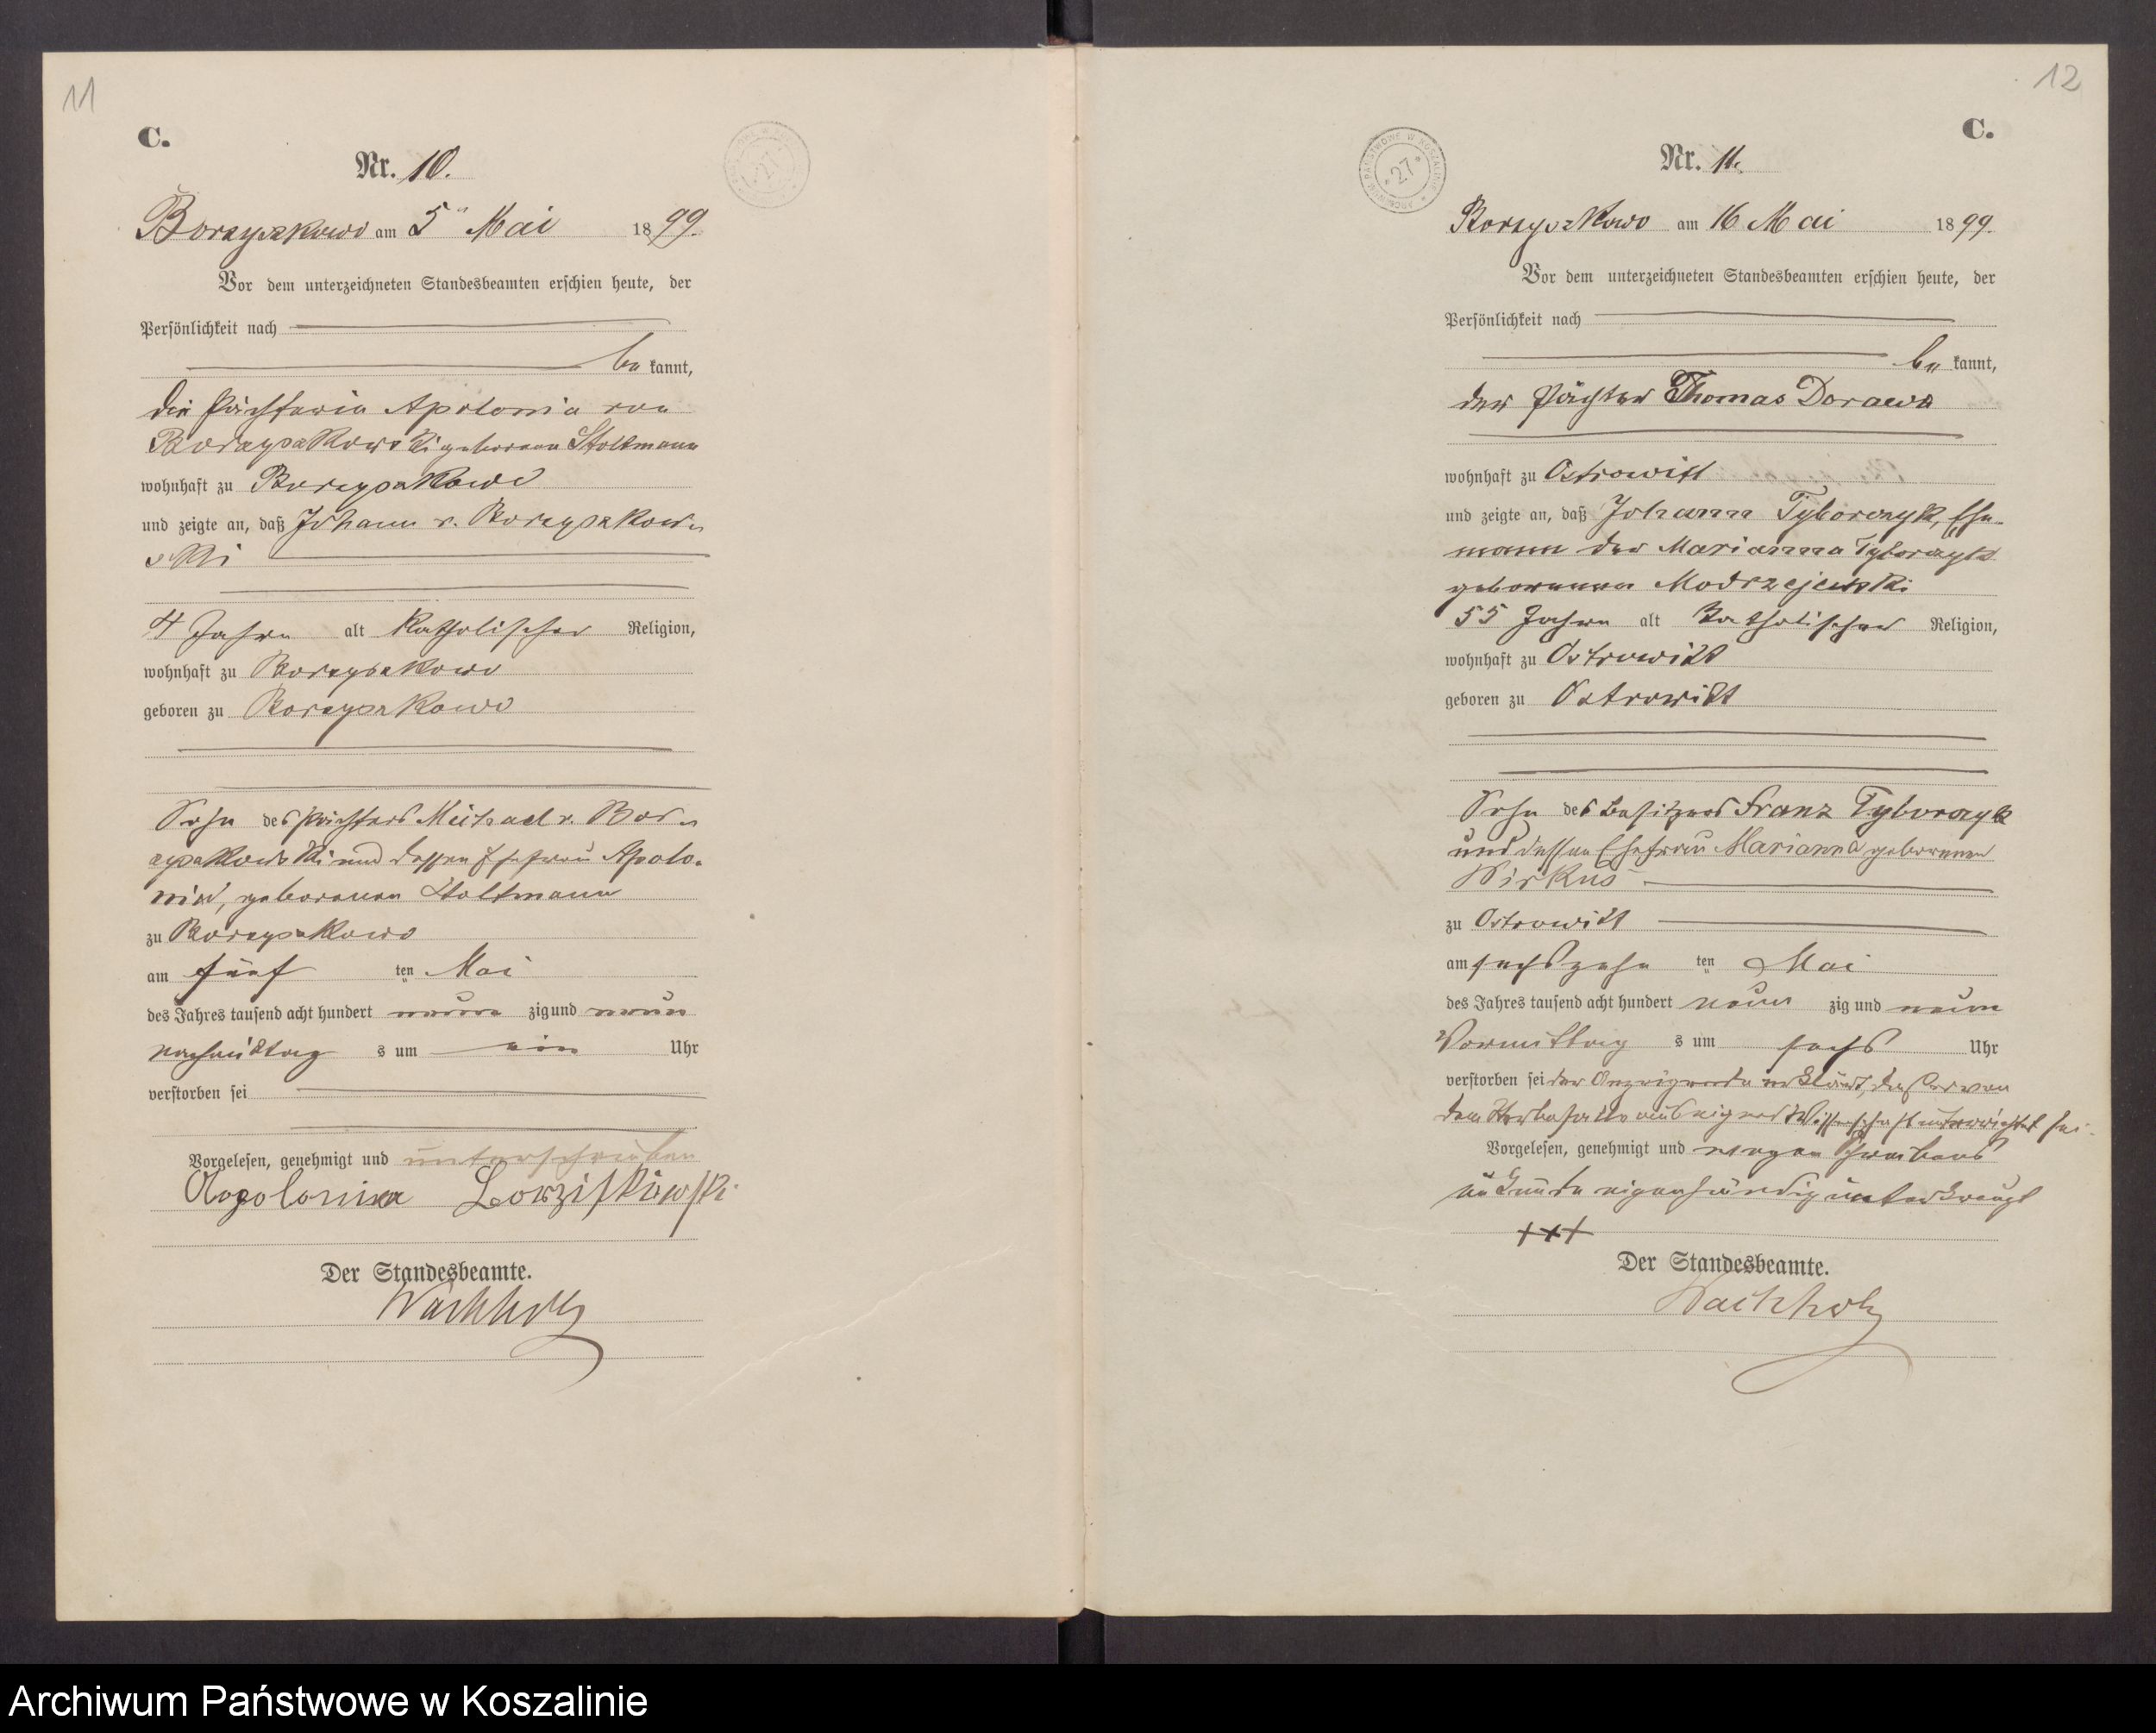 11
C.
Nr. 10.
Borzyszkowo am 5ⁿ Mai 1899.
Vor dem unterzeichneten Standesbeamten erschien heute, der
Persönlichkeit nach
be kannt,
die Pächterin Apolonia von
Borzyszkowski geborene Stoltmann
wohnhaft zu Borzyszkowo
und zeigte an, daß Johann v. Borzyszkow-
ski
4 Jahre alt katholischer Religion,
wohnhaft zu Borzyszkowo
geboren zu Borzyszkowo
Sohn des Pächters Michael v. Bor-
zyszkowski und dessen Ehefrau Apolo-
nia, geborenen Stoltmann
zu Borzyszkowo
am fünf ten Mai
des Jahres tausend acht hundert neun zig und neun
Nachmittag s um ein Uhr
verstorben sei
Vorgelesen, genehmigt und unterschrieben
Appolonia
Der Standesbeamte.
Wachholz
12
C.
ARCHIWUM PAŃSTWOWE W KOSZALINIE
* 27 *
Nr. 11.
Borzyszkowo am 16 Mai 1899.
Vor dem unterzeichneten Standesbeamten erschien heute, der
Persönlichkeit nach
be kannt,
der Pächter Thomas Dorawa
wohnhaft zu Ostrowitt
und zeigte an, daß Johann Tyborczyk, Ehe-
mann der Marianna Tyborczyk
geborenen Modrzejewski
55 Jahre alt katholischer Religion,
wohnhaft zu Ostrowitt
geboren zu Ostrowitt
Sohn des Besitzers Franz Tyborczyk
und dessen Ehefrau Marianna geborenen
Wirkus
zu Ostrowitt
am sechszehn ten Mai
des Jahres tausend acht hundert neun zig und neun
Vormittag s um sechs Uhr
verstorben sei der Anzeigende erklärt, daß er von
dem Sterbefalle aus eigner Wissenschaft unterrichtet sei.
Vorgelesen, genehmigt und wegen Schreibens
unkunde eigenhändig unterkreuzt
+++
Der Standesbeamte.
Wachholz
Archiwum Państwowe w Koszalinie